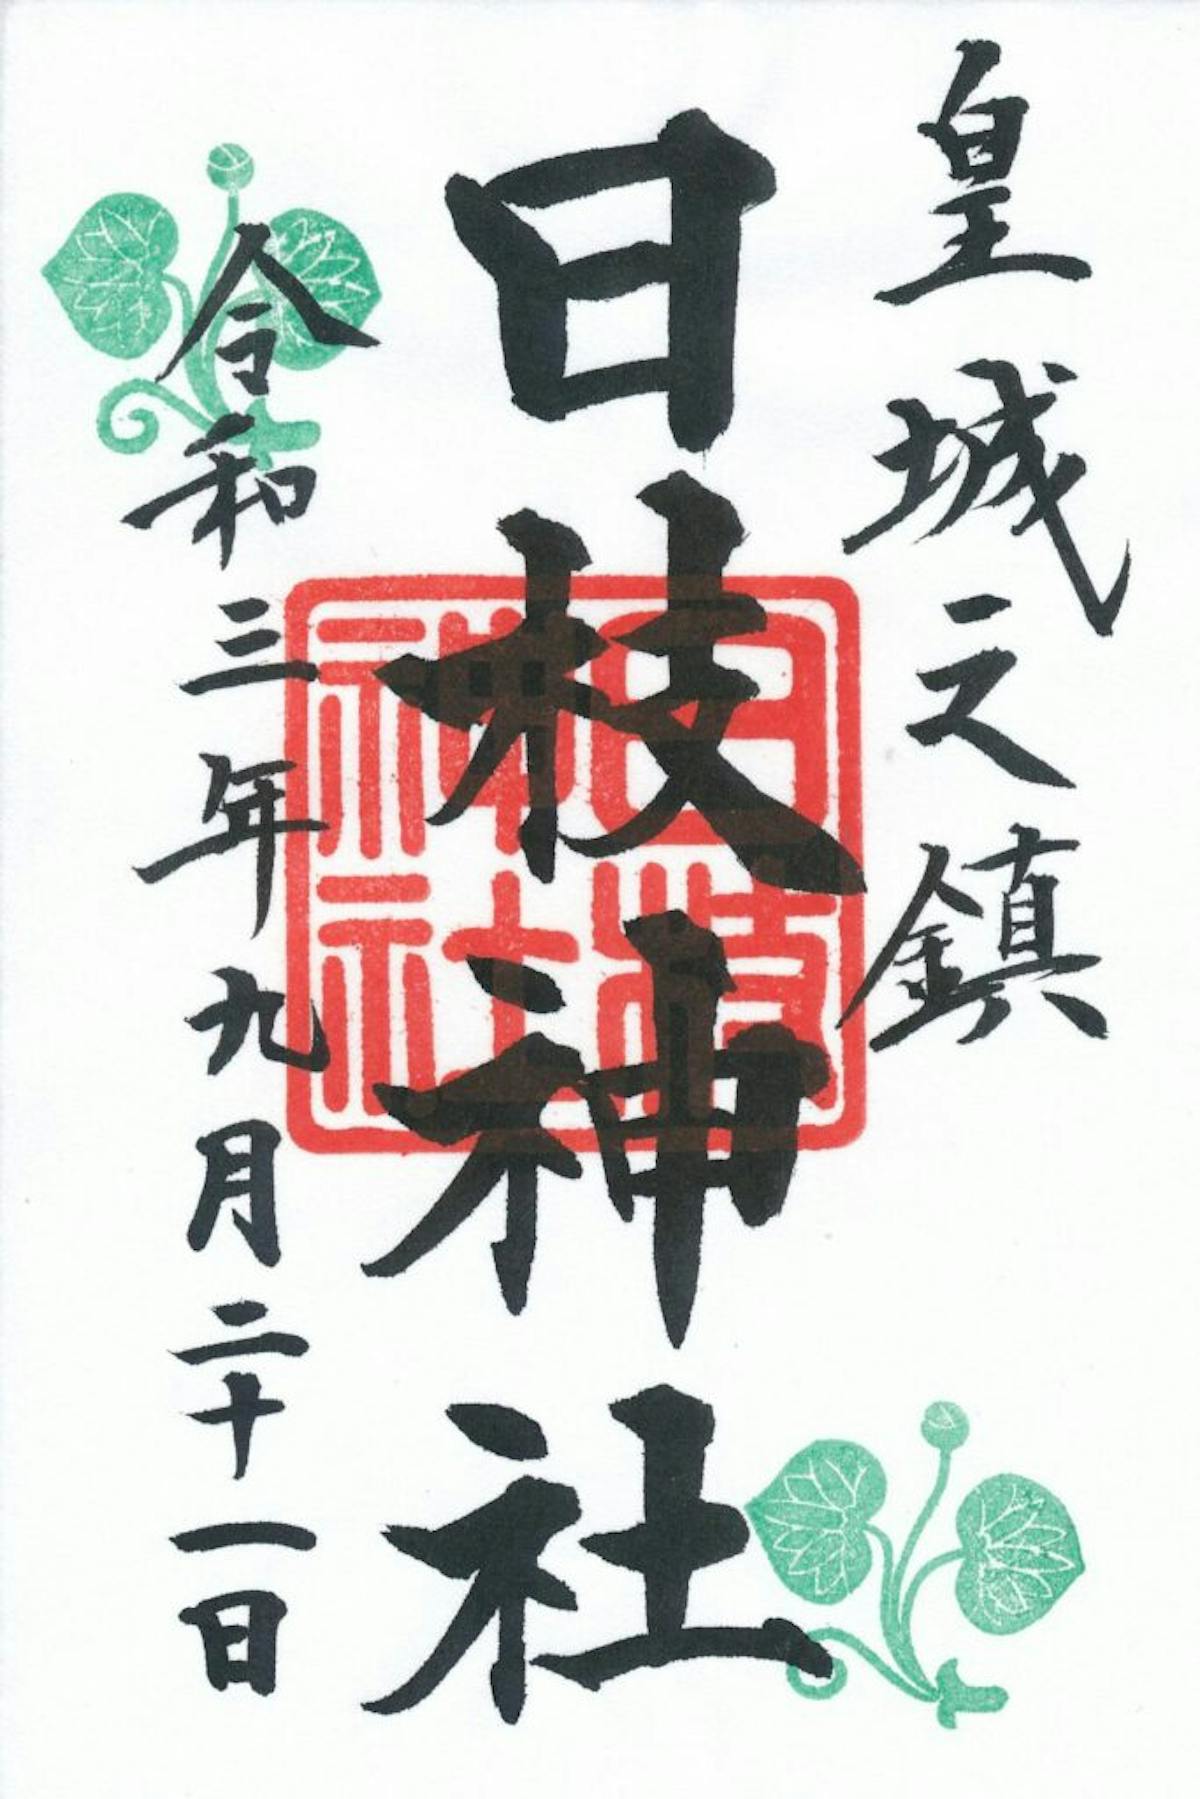 皇城之鎮
日枝神社
日枝神社
令和三年九月二十一日